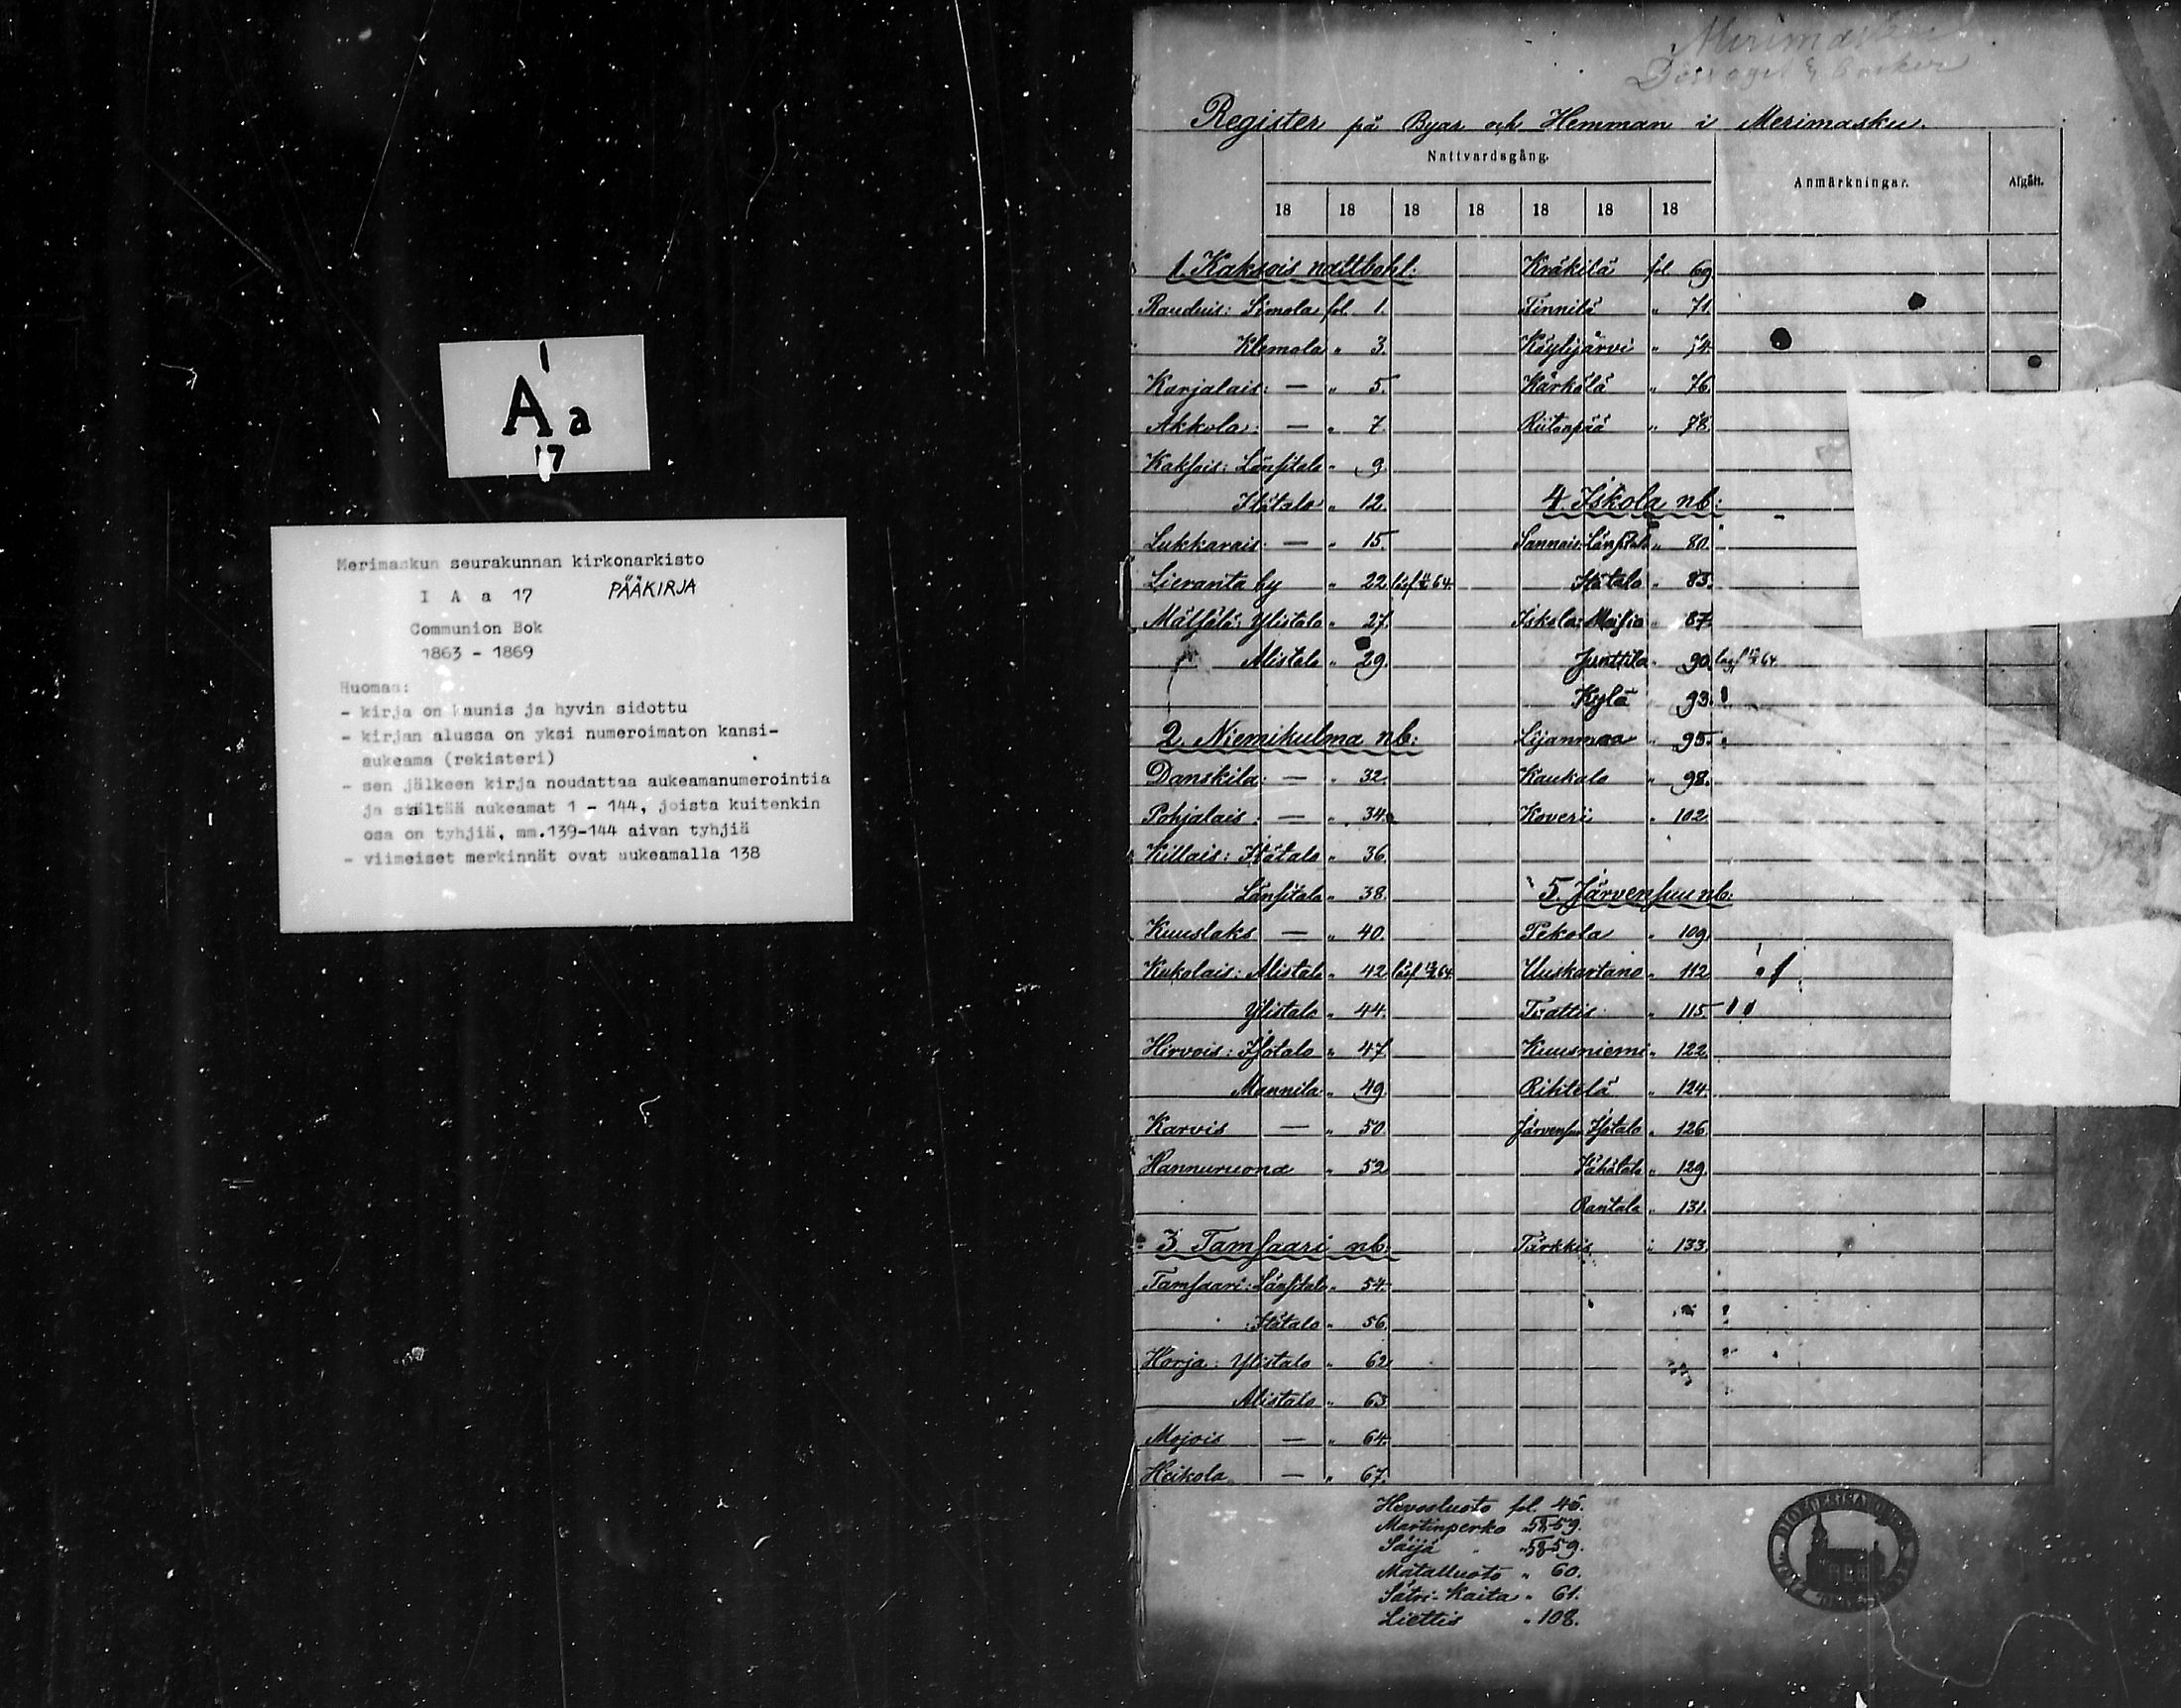 I
A a
17
Merimaskun seurakunnan kirkonarkisto
I A a 17 PÄÄKIRJA
Communion Bok
1863 - 1869
Huomaa:
- kirja on kaunis ja hyvin sidottu
- kirjan alussa on yksi numeroimaton kansi-
aukeama (rekisteri)
- sen jälkeen kirja noudattaa aukeamanumerointia
ja sisältää aukeamat 1 - 144, joista kuitenkin
osa on tyhjiä, mm.139-144 aivan tyhjiä
- viimeiset merkinnät ovat aukeamalla 138
Merimasku
Register på Byar och Hemman i Merimasku.
Nattvardsgång.
Anmärkningar.
Afgått.
18 18 18 18 18 18 18
1. Kaksois nattbohl.
Rauduis: Simola fol. 1.
Klemola " 3.
Karjalais: — " 5.
Akkola: — " 7.
Kaksois: Länsitalo " 9.
Itätalo " 12.
Lukkarais: — " 15.
Lieranta by " 22.
Mälsälä: Ylistalo " 27.
Alistalo " 29.
2. Niemikulma nb:
Danskila: — " 32.
Pohjalais: — " 34.
Killais: Itätalo " 36.
Länsitalo " 38.
Kuuslaks — " 40.
Kukolais: Alistalo " 42.
Ylistalo " 44.
Hirvois: Isotalo " 47.
Mannila " 49.
Karvis — " 50
Hannuruona " 52
3. Tamsaari nb.
Tamsaari: Länsitalo " 54.
: Itätalo " 56.
Horja: Ylistalo " 62
Alistalo " 63
Mojois — " 64.
Heikola — " 67.
Kräkilä fol. 69
Tinnilä " 71.
Köylijärvi " 74.
Kärkälä " 76.
Riitanpää " 78.
4. Iskola nb:
Sannais: Länsitalo " 80.
Itätalo " 83.
Iskola: Maisia " 87.
Junttila " 90.
Kylä " 93.
Lijanmaa " 95.
Kaukalo " 98.
Koveri " 102
5. Järvensuu nb:
Pekola " 109
Uuskartano " 112
Trattis " 115
Kuusniemi " 122
Rihtelä " 124.
Järvensuu Isotalo " 126
Vähätalo " 129.
Rantala " 131.
Tärkkis " 133.
Hevosluoto fol. 46.
Martinperko " 58-59.
Säijä " 58-59.
Matalluoto " 60.
Sätri-Kaita " 61.
Liettis " 108.